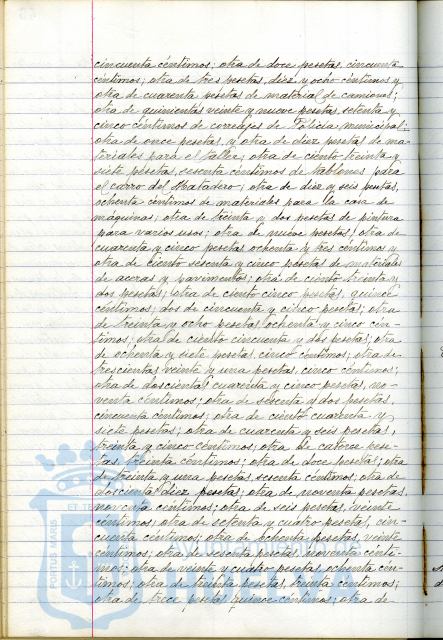 cincuenta céntimos; otra de doce pesetas, cincuenta
céntimos; otra de tres pesetas, diez y ocho céntimos y
otra de cuarenta pesetas de material de camiones;
otra de quinientas veinte y nueve pesetas, setenta y
cinco céntimos de correajes de Policía municipal;
otra de once pesetas, y otra de diez pesetas de ma-
teriales para el taller; otra de ciento treinta y
siete pesetas, sesenta céntimos de tablones para
el carro del Matadero; otra de diez y seis pesetas,
ochenta céntimos de materiales para la casa de
máquinas; otra de treinta y dos pesetas de pintura
para varios usos; otra de nueve pesetas; otra de
cuarenta y cinco pesetas ochenta y tres céntimos y
otra de ciento sesenta y cinco pesetas de materiales
de aceras y pavimentos; otra de ciento treinta y
dos pesetas; otra de ciento cinco pesetas, quince
céntimos; dos de cincuenta y cinco pesetas; otra
de treinta y ocho pesetas ochenta y cinco cén-
timos; otra de ciento cincuenta y dos pesetas; otra
de ochenta y siete pesetas, cinco céntimos; otra de
trescientas veinte y una pesetas, cinco céntimos;
otra de doscientas cuarenta y cinco pesetas, no-
venta céntimos; otra de sesenta y dos pesetas,
cincuenta céntimos; otra de ciento cuarenta y
siete pesetas; otra de cuarenta y seis pesetas,
treinta y cinco céntimos; otra de catorce pese-
tas, treinta céntimos; otra de doce pesetas; otra
de treinta y una pesetas, sesenta céntimos; otra de
doscientas diez pesetas; otra de noventa pesetas,
noventa céntimos; otra de seis pesetas, veinte
céntimos; otra de setenta y cuatro pesetas, cin-
cuenta céntimos; otra de ochenta pesetas, veinte
céntimos; otra de sesenta pesetas, noventa cénti-
mos; otra de veinte y cuatro pesetas, ochenta cén-
timos; otra de treinta pesetas, treinta céntimos;
otra de trece pesetas quince céntimos; otra de
PORTUS MARIS ET TE